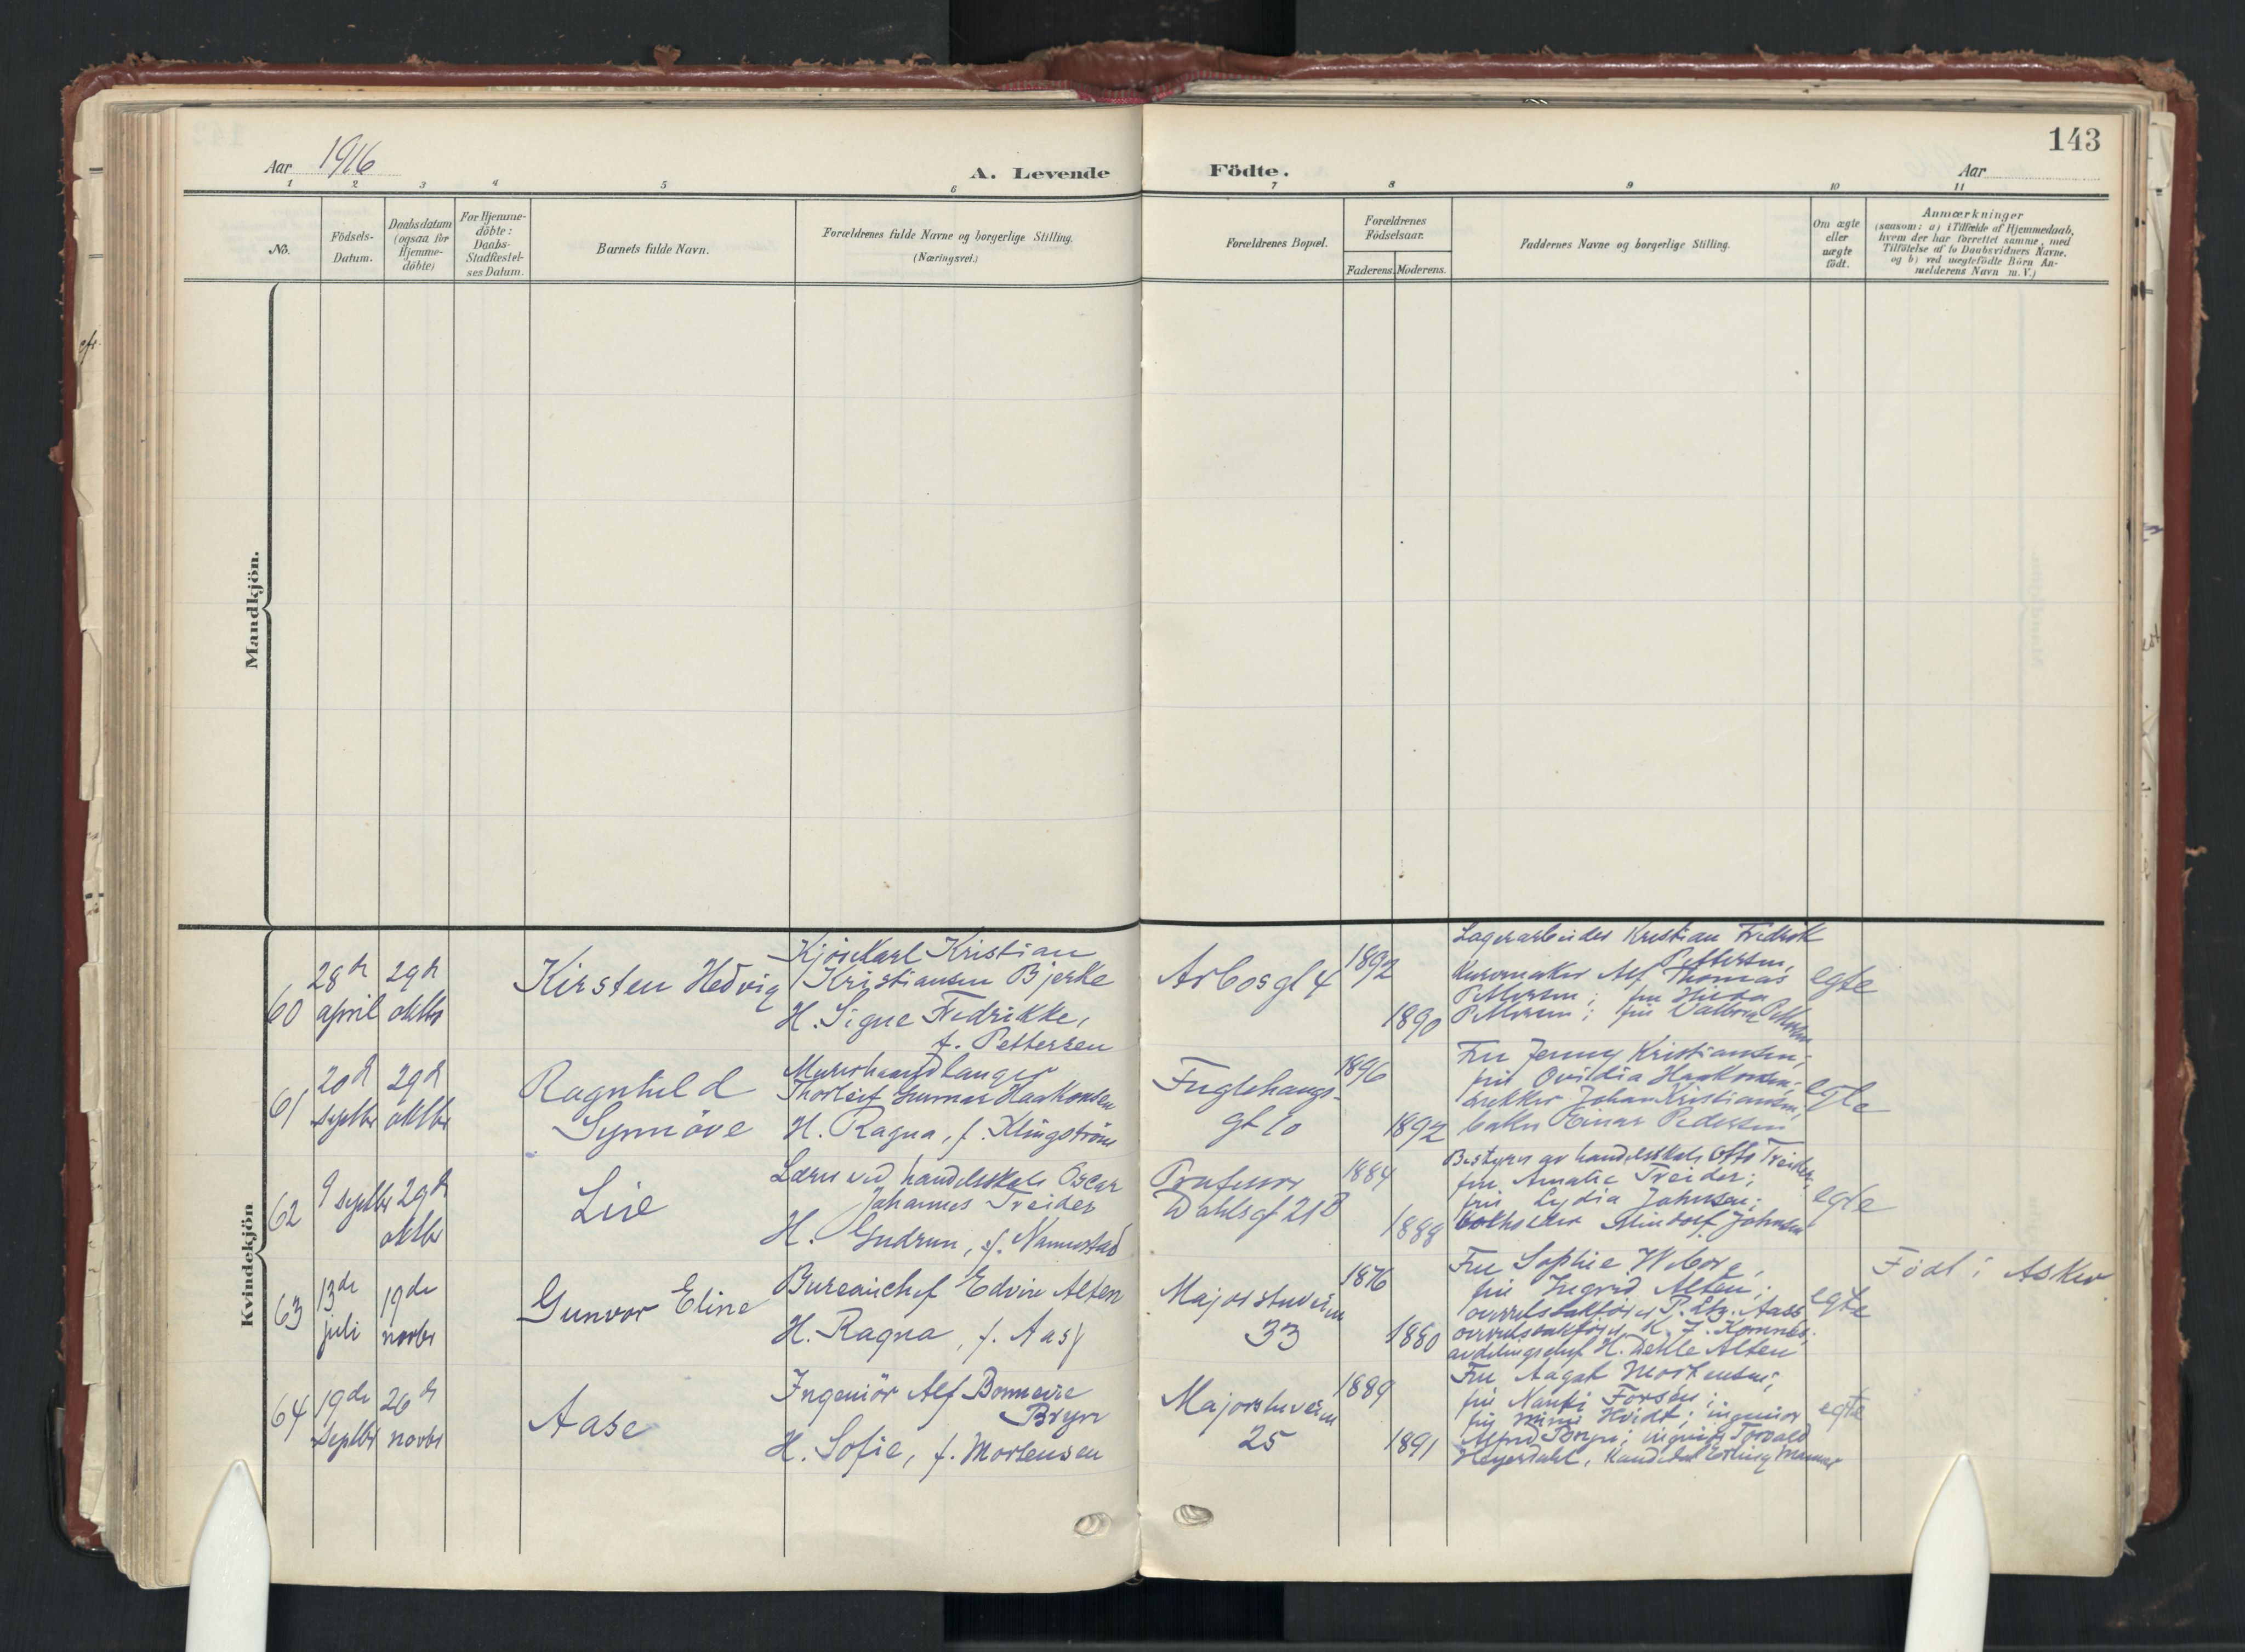 143
Aar 1916
A. Levende Födte.
Aar
1 2 3 4 5 6 7 8 9 10 11
No.
Födsels-Datum.
Daabsdatum (ogsaa for Hjemme-döbte)
For Hjemme-döbte: Daabs-Stadfæstel-ses Datum.
Barnets fulde Navn.
Forældrenes fulde Navne og borgerlige Stilling.
(Næringsvei.)
Forældrenes Bopæl.
Forældrenes Födselsaar.
Faderens. Moderens.
Faddernes Navne og borgerlige Stilling.
Om ægte eller uægte födt.
Anmærkninger
(saasom: a) i Tilfælde af Hjemmedaab,
hvem der har forrettet samme, med
Tilföielse af to Daabsvidners Navne.
og b) ved uægtefödte Börn An-
melderens Navn m. V.)
Mandkjön.
Kvindekjön
60
28de april
29de oktbr
Kirsten Hedvig
Karl Kristian
Kristiansen Bjerke
H. Signe Fredrikke,
f. Pettersen
1892
1890
Lagerarbeider Kristian Fredrik
Pettersen,
Thomas
egte
61
20de septbr
29de oktbr
Ragnhild
Synnöve
Murerhaandlanger
Thorleif Gunnar Haakonsen
H. Ragna, f. Klingström
Fuglehaugs-
gt 10
1896
1892
Fru Jenny Kristiansen;
fru Ovidia Haakonsen;
Johan Kristiansen,
Einar Pedersen
egte
62
9 septbr
29de oktbr
Lise
Lærer ved handelsskole Oscar
Johannes Treider
H. Gudrun, f. Nannestad
Professor
Dahlsgt 21B
1884
1888
Bestyrer av handelsskole Otto Treider,
fru Amalie Treider;
fru Lydia Johnsen;
Johnsen
egte
63
13de juli
19de novbr
Gunvor Eline
Bureauchef Edvin Alten
H. Ragna, f. Aas
Majorstuveien
33
1876
1880
Fru Sophie
fru Ingrid Alten;
overretssakförer P. Aass
overretssakförer K. J.
avdelingschef H. Dehle Alten
egte
Födt i Asker
64
19de septbr
26de novbr
Aase
Ingeniör Alf Bonnevie
Bryn
H. Sofie, f. Mortensen
Majorstuveien
25
1889
1891
Fru Aagot Mortensen;
fru Forsén;
fru Mimi Hvidt; ingeniör
Alfred Bryn; ingeniör Torvald
Heyerdahl, kandidat Erling
egte